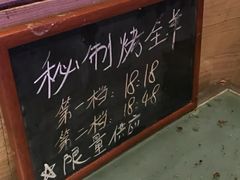 秘制烤全羊
第一档：18:18
第二档：18:48
☆限量供应